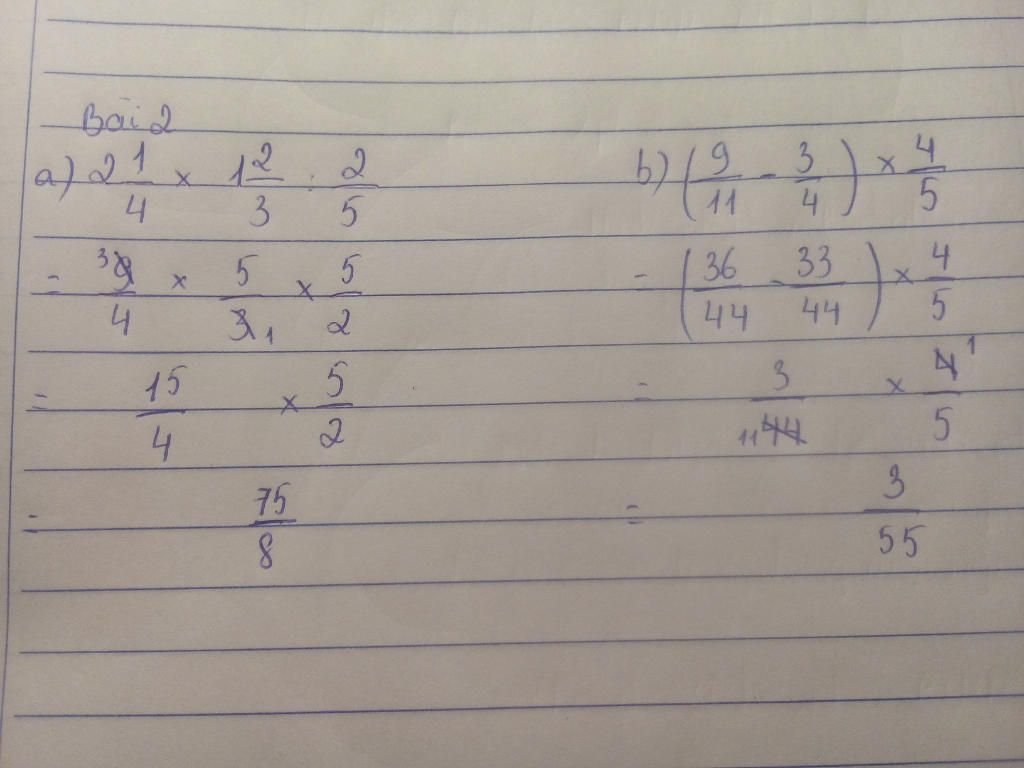 Bài 2
a) 2 1/4 × 1 2/3 : 2/5
= ³9/4 × 5/3₁ × 5/2
= 15/4 × 5/2
= 75/8
b) (9/11 - 3/4) × 4/5
= (36/44 - 33/44) × 4/5
= 3/₁₁44 × 4¹/5
= 3/55